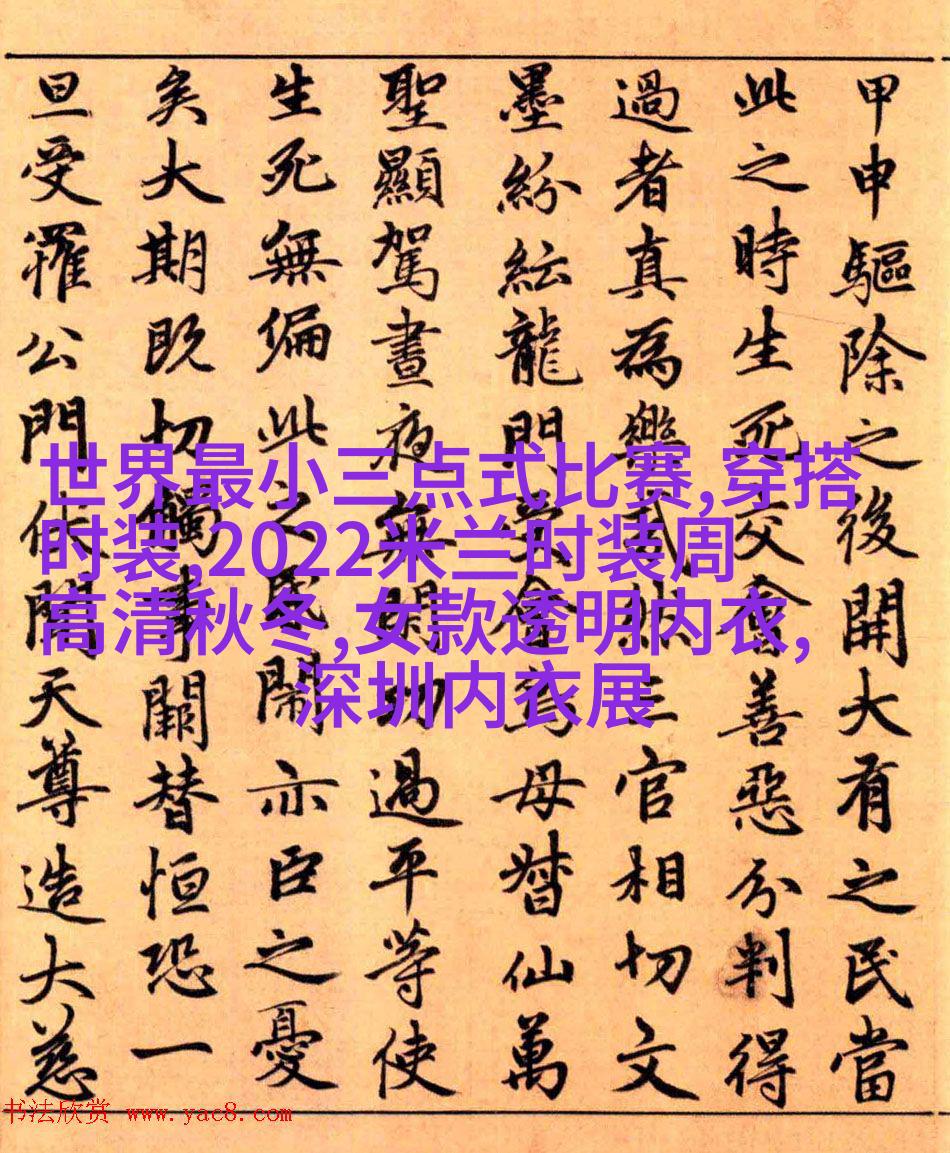 甲申驅除之後開大有之民當
此之時生死交會善惡分判得
過者真為
三官相切文
墨紛紜龍門
為母督仙萬
聖顯駕晝夜無閑
過平等使
生死無偏此之
鬧亦臣之憂
矣大期既切觸事闕替恒恐一
旦受罹公門伏聞天尊造大慈
世界最小三点式比赛,穿搭
时装,2022米兰时装周
高清秋冬,女款透明内衣,
深圳内衣展
书法欣赏 www.yac8.com